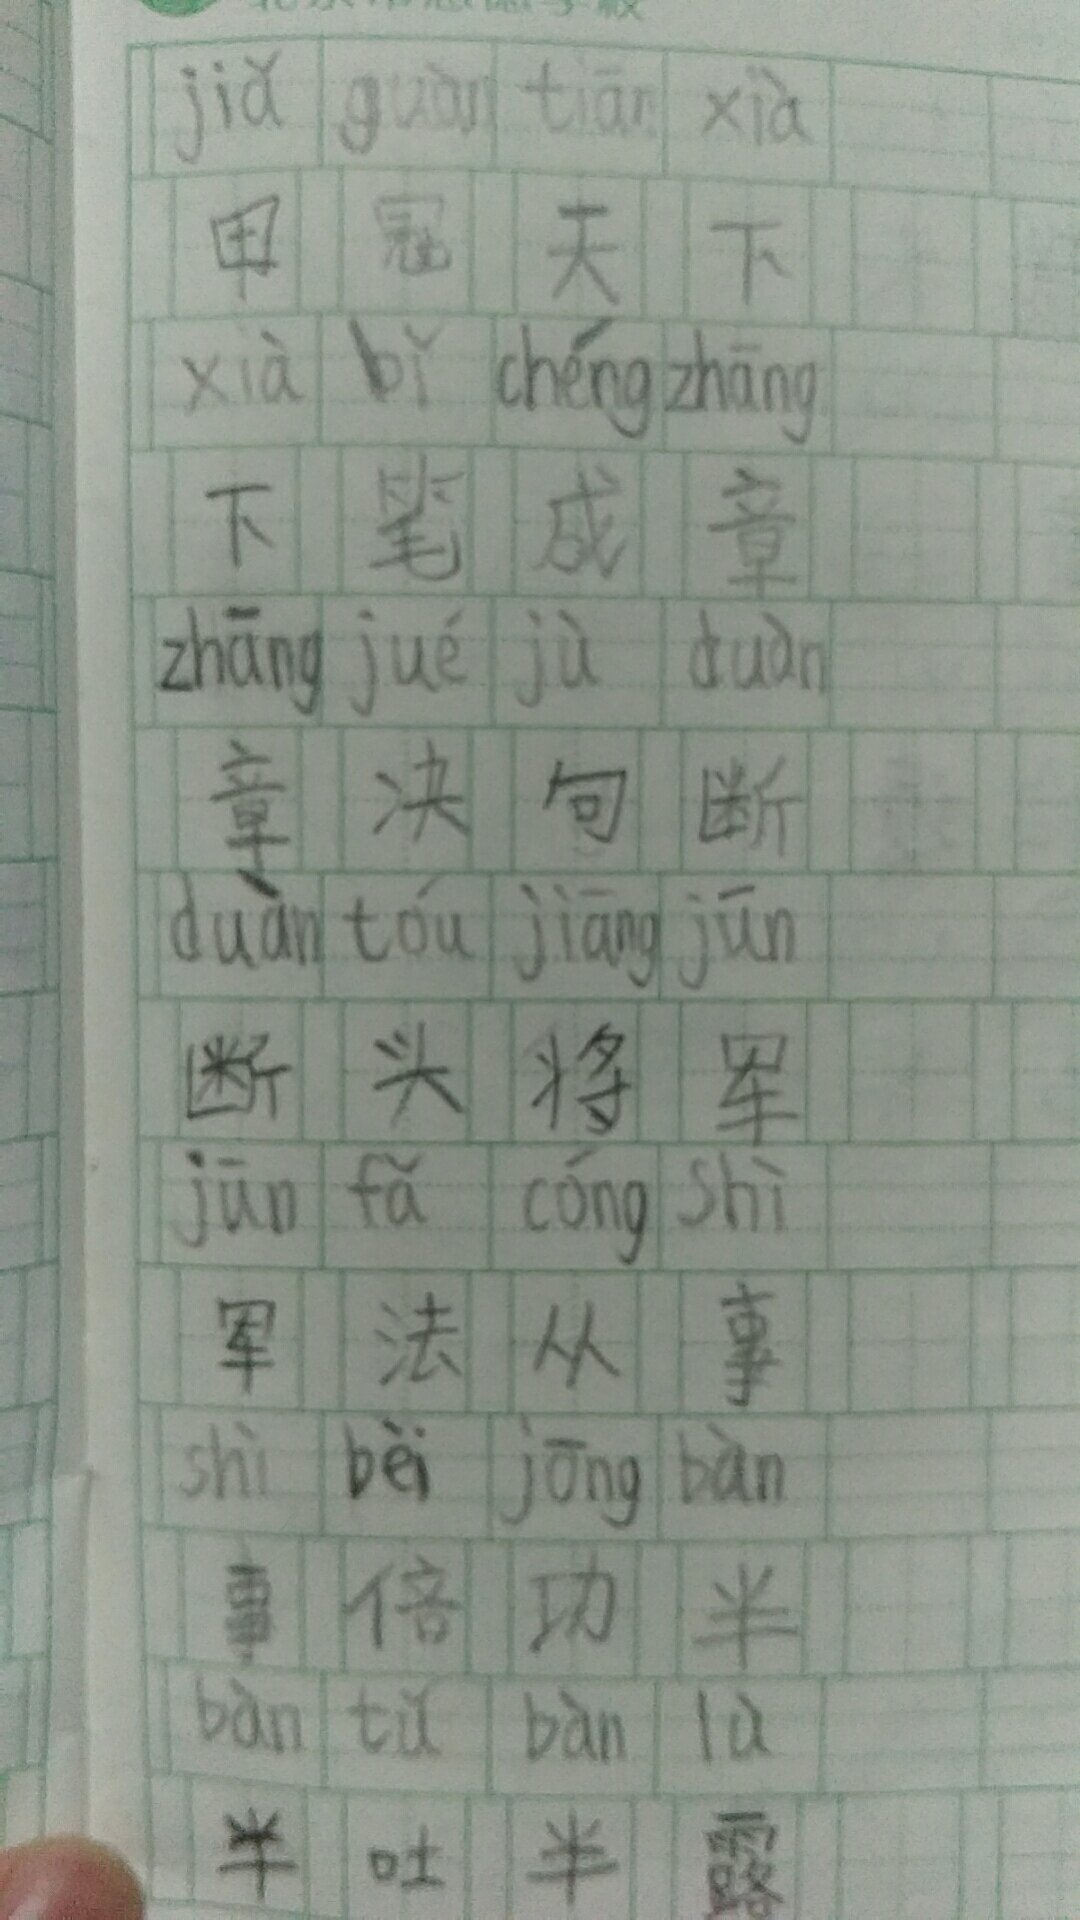 jiǎ guàn tiān xià
甲 冠 天 下
xià bǐ chéng zhāng
下 笔 成 章
zhāng jué jù duàn
章 决 句 断
duàn tóu jiāng jūn
断 头 将 军
jūn fǎ cóng shì
军 法 从 事
shì bèi jōng bàn
事 倍 功 半
bàn tǔ bàn lù
半 吐 半 露